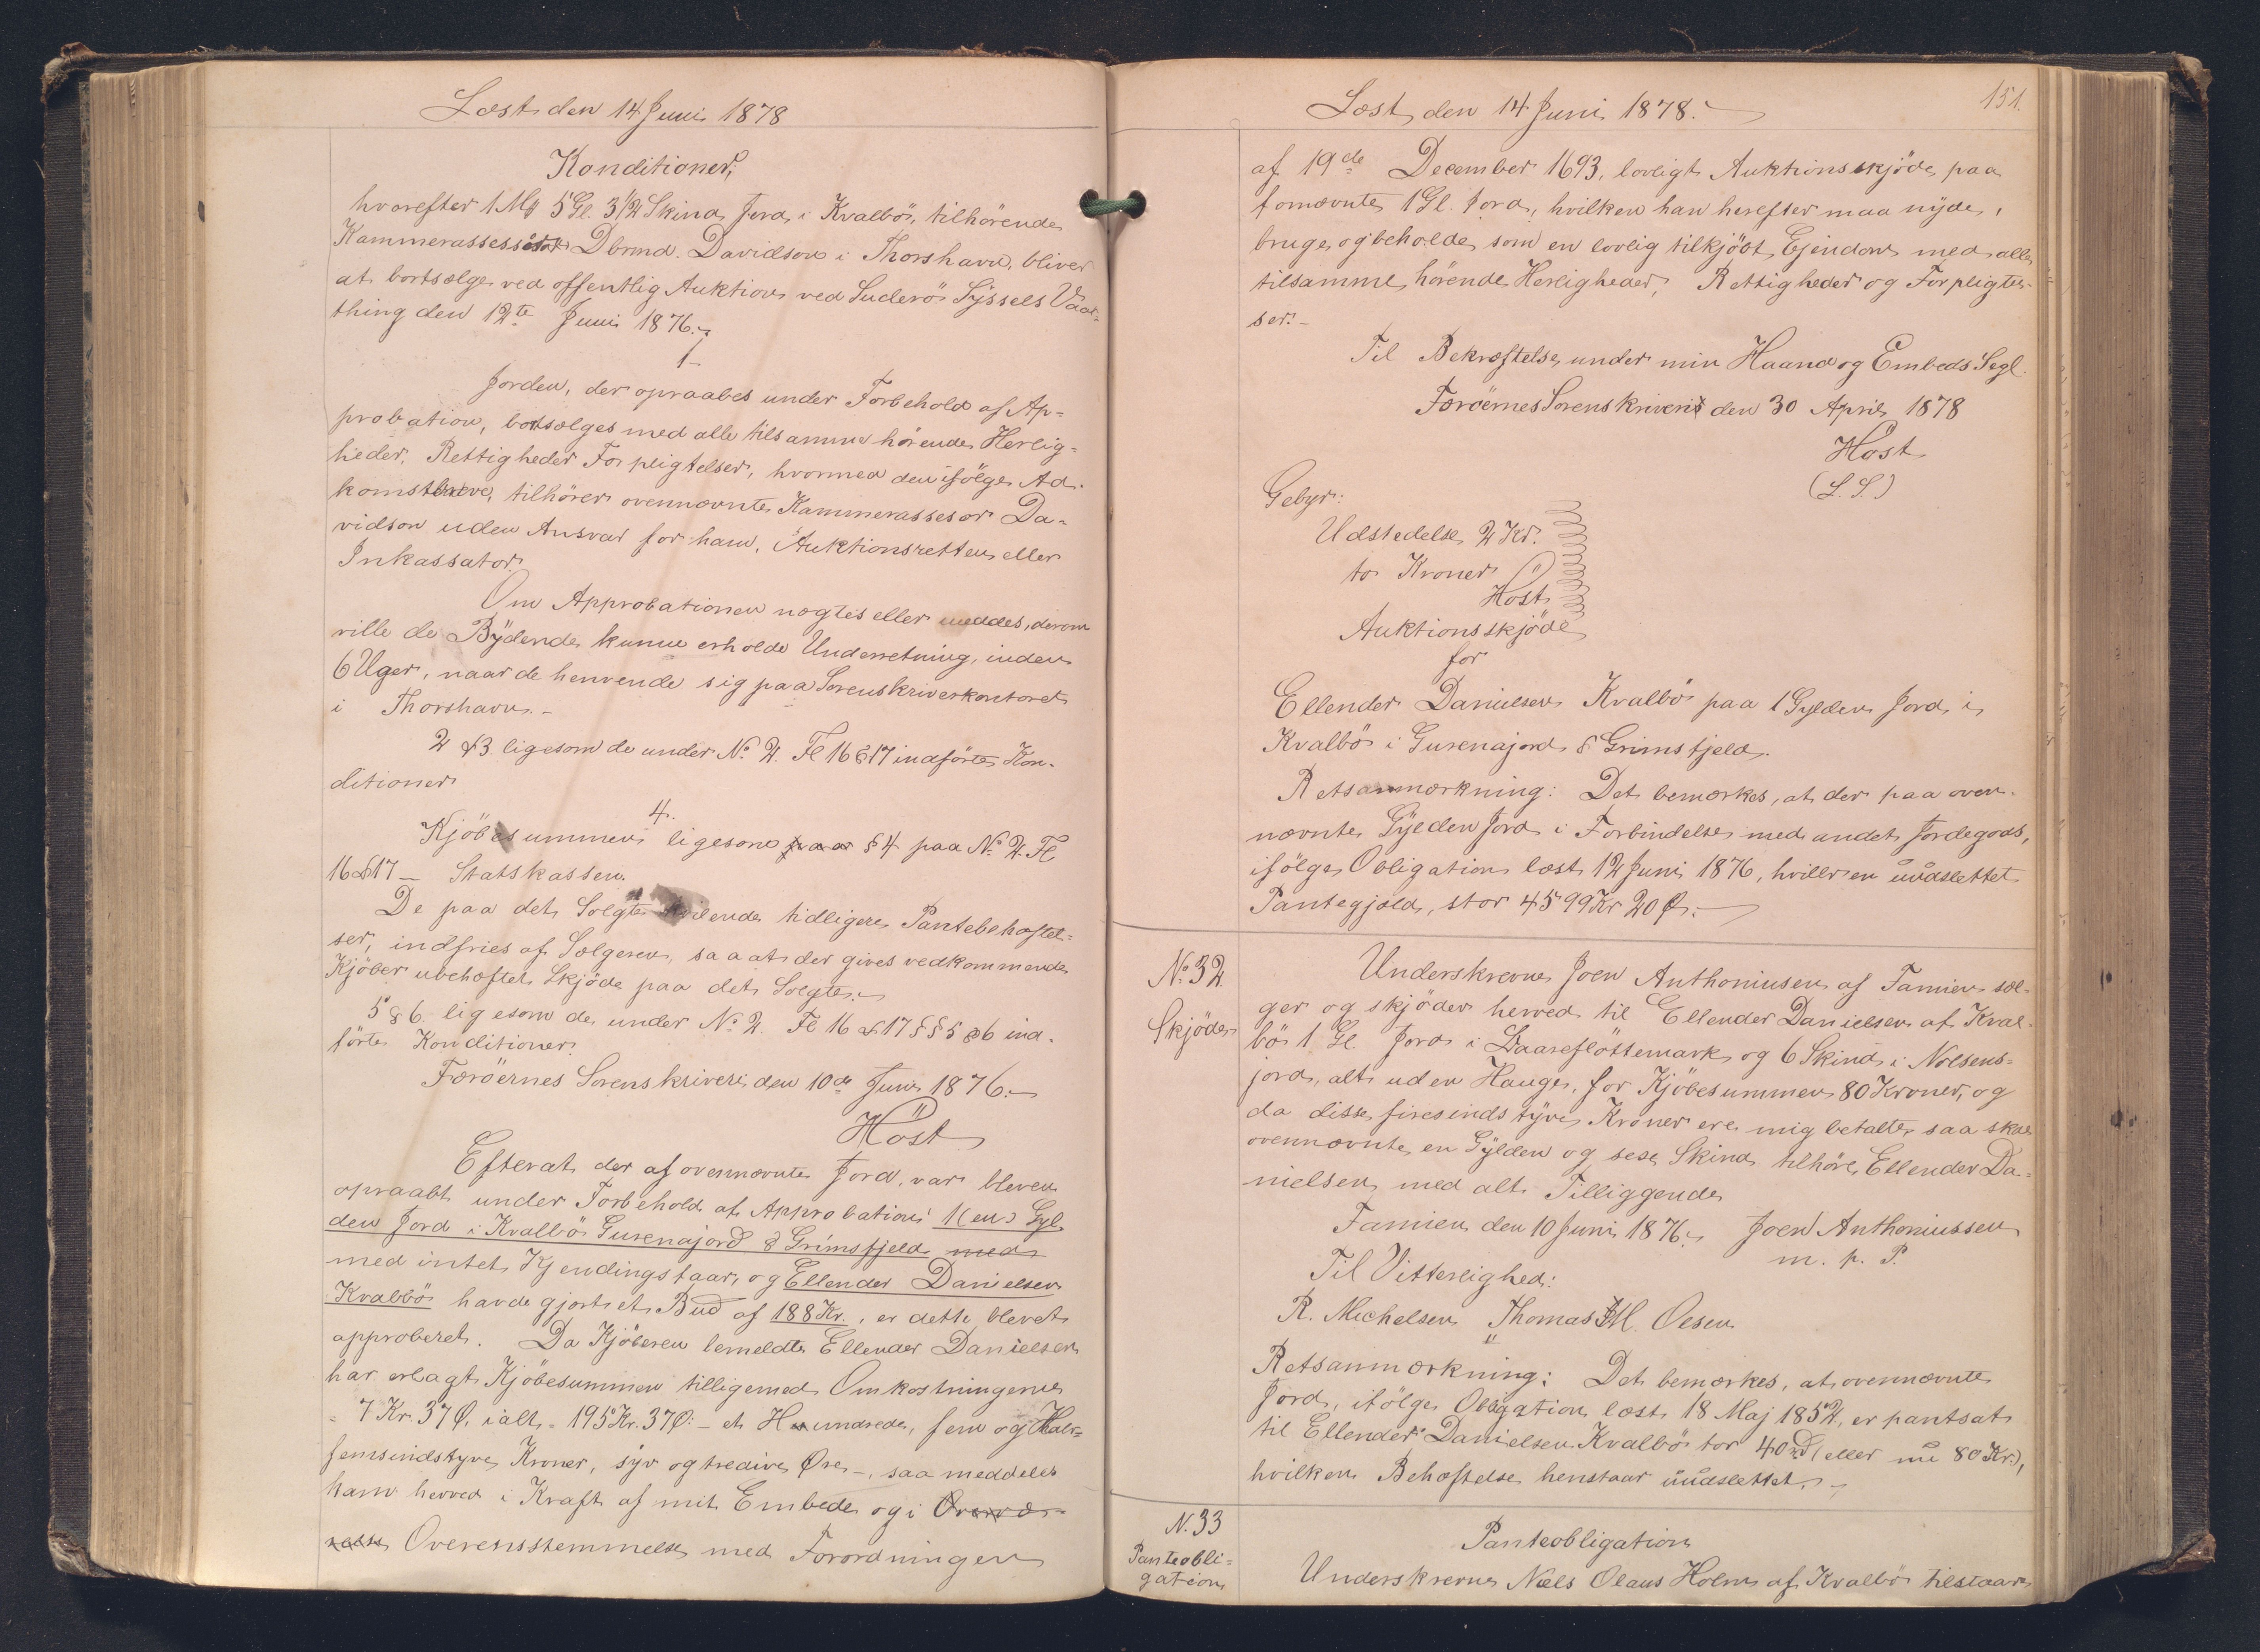 Læst den 14 Juni 1878
Konditioner,
hvorefter 1 Mk 5 Gl. 3 1/2 Skind Jord i Kvalbö, tilhörende
Kammerassessor Dbrmd. Davidson i Thorshavn, bliver
at bortsælge ved offentlig Auktion ved Suderö Syssels Vaar-
thing den 12te Juni 1876.
1
Jorden, der opraabes under Forbehold af Ap=
probation, bortsælges med alle tilsamme hörende Herlig=
heder, Rettigheder Forpligtelser, hvormed den ifölge Ad-
komstbreve, tilhörer ovennævnte Kammerassesor Da=
vidson uden Ansvar for ham, Auktionsretten eller
Inkassator.
Om Approbationen nægtes eller meddes, derom
ville de Bydende kunne erholde Underretning, inden
6 Uger, naar de henvende sig paa Sorenskriverkontoret
i Thorshavn. -
2 & 3 ligesom de under No. 2. Fl 16 & 17 indförte Kon-
ditioner
4.
Kjöbesummen ligesom § 4 paa No. 2. Fl
16 & 17 - Statskassen.
De paa det Solgte hvilende tidligere Pantebehæftel=
ser, indfries af Sælgeren, saa at der gives vedkommende
Kjöber ubehæftet Skjöde paa det Solgte. -
5 & 6. ligesom de under No. 2. Fl 16 & 17 §§ 5 & 6 ind-
förte Konditioner.
Færöernes Sorenskriveri den 10de Juni 1876. -
Höst
Efterat der af ovennævnte Jord, var bleven
opraabt under Forbehold af Approbation: 1 (en) Gyl
den Jord i Kvalbö Gusenajord & Grimsfjeld med
med intet Kjendingsfaar, og Ellender Danielsen
Kvalbö havde gjort et Bud af 188 Kr., er dette blevet
approberet. Da Kjöberen bemeldte Ellender Danielsen
har erlagt Kjöbesummen tilligemed Omkostningerne
= 7 Kr. 37 Ø, ialt = 195 Kr. 37 Ø. - et Hundrede, fem og Halv=
femsindstyve Kroner, syv og tredive Øre -, saa meddeles
ham herved i Kraft af mit Embede og i
Overensstemmelse med Forordningen
Læst den 14 Juni 1878.
151.
af 19de December 1693, lovligt Auktionsskjöde paa
fornævnte 1 Gl. Jord, hvilken han herefter maa nyde,
bruge og beholde som en lovlig tilkjöbt Ejendom med alle
tilsamme hörende Herligheder, Rettigheder og Forpligtel-
ser. -
Til Bekræftelse under min Haand og Embeds Segl.
Færöernes Sorenskriveri den 30 April 1878
Höst
(L. S.)
Gebyr:
Udstedelse 2 Kr.
to Kroner
Höst
Auktionsskjöde
for
Ellender Danielsen Kvalbö paa 1 Gylden Jord i
Kvalbö i Gusenajord & Grimsfjeld.
Retsanmærkning: Det bemærkes, at der paa oven-
nævnte Gylden Jord i Forbindelse med andet Jordegods,
ifölge Obligation læst 12 Juni 1876, hviler en uudslettet
Pantegjæld, stor 4599 Kr 20 Ø. -
No. 32
Skjöde
Underskrevne Joen Anthoniusen af Famien sæl-
ger og skjöder herved til Ellender Danielsen af Kval-
bö 1 Gl. Jord i Laareflöttemark og 6 Skind i Nolsens=
jord, alt uden Hauge, for Kjöbesummen 80 Kroner, og
da disse firesindstyve Kroner ere mig betalte, saa skal
ovennævnte en Gylden og sex Skind tilhöre Ellender Da=
nielsen med alt Tilliggende
Famien den 10 Juni 1876. Joen Anthoniussen
m. p. P.
Til Vitterlighed:
R. Michelsen Thomas M. Olsen
Retsanmærkning: Det bemærkes, at ovennævnte
Jord, ifölge Obligation læst 18 Maj 1852, er pantsat
til Ellender Danielsen Kvalbö for 40 rd (eller nu 80 Kr.),
hvilken Behæftelse henstaar uudslettet. -
N. 33
Panteobli=
gation
Panteobligation
Underskrevne Niels Olaus Holm af Kvalbö tilstaar